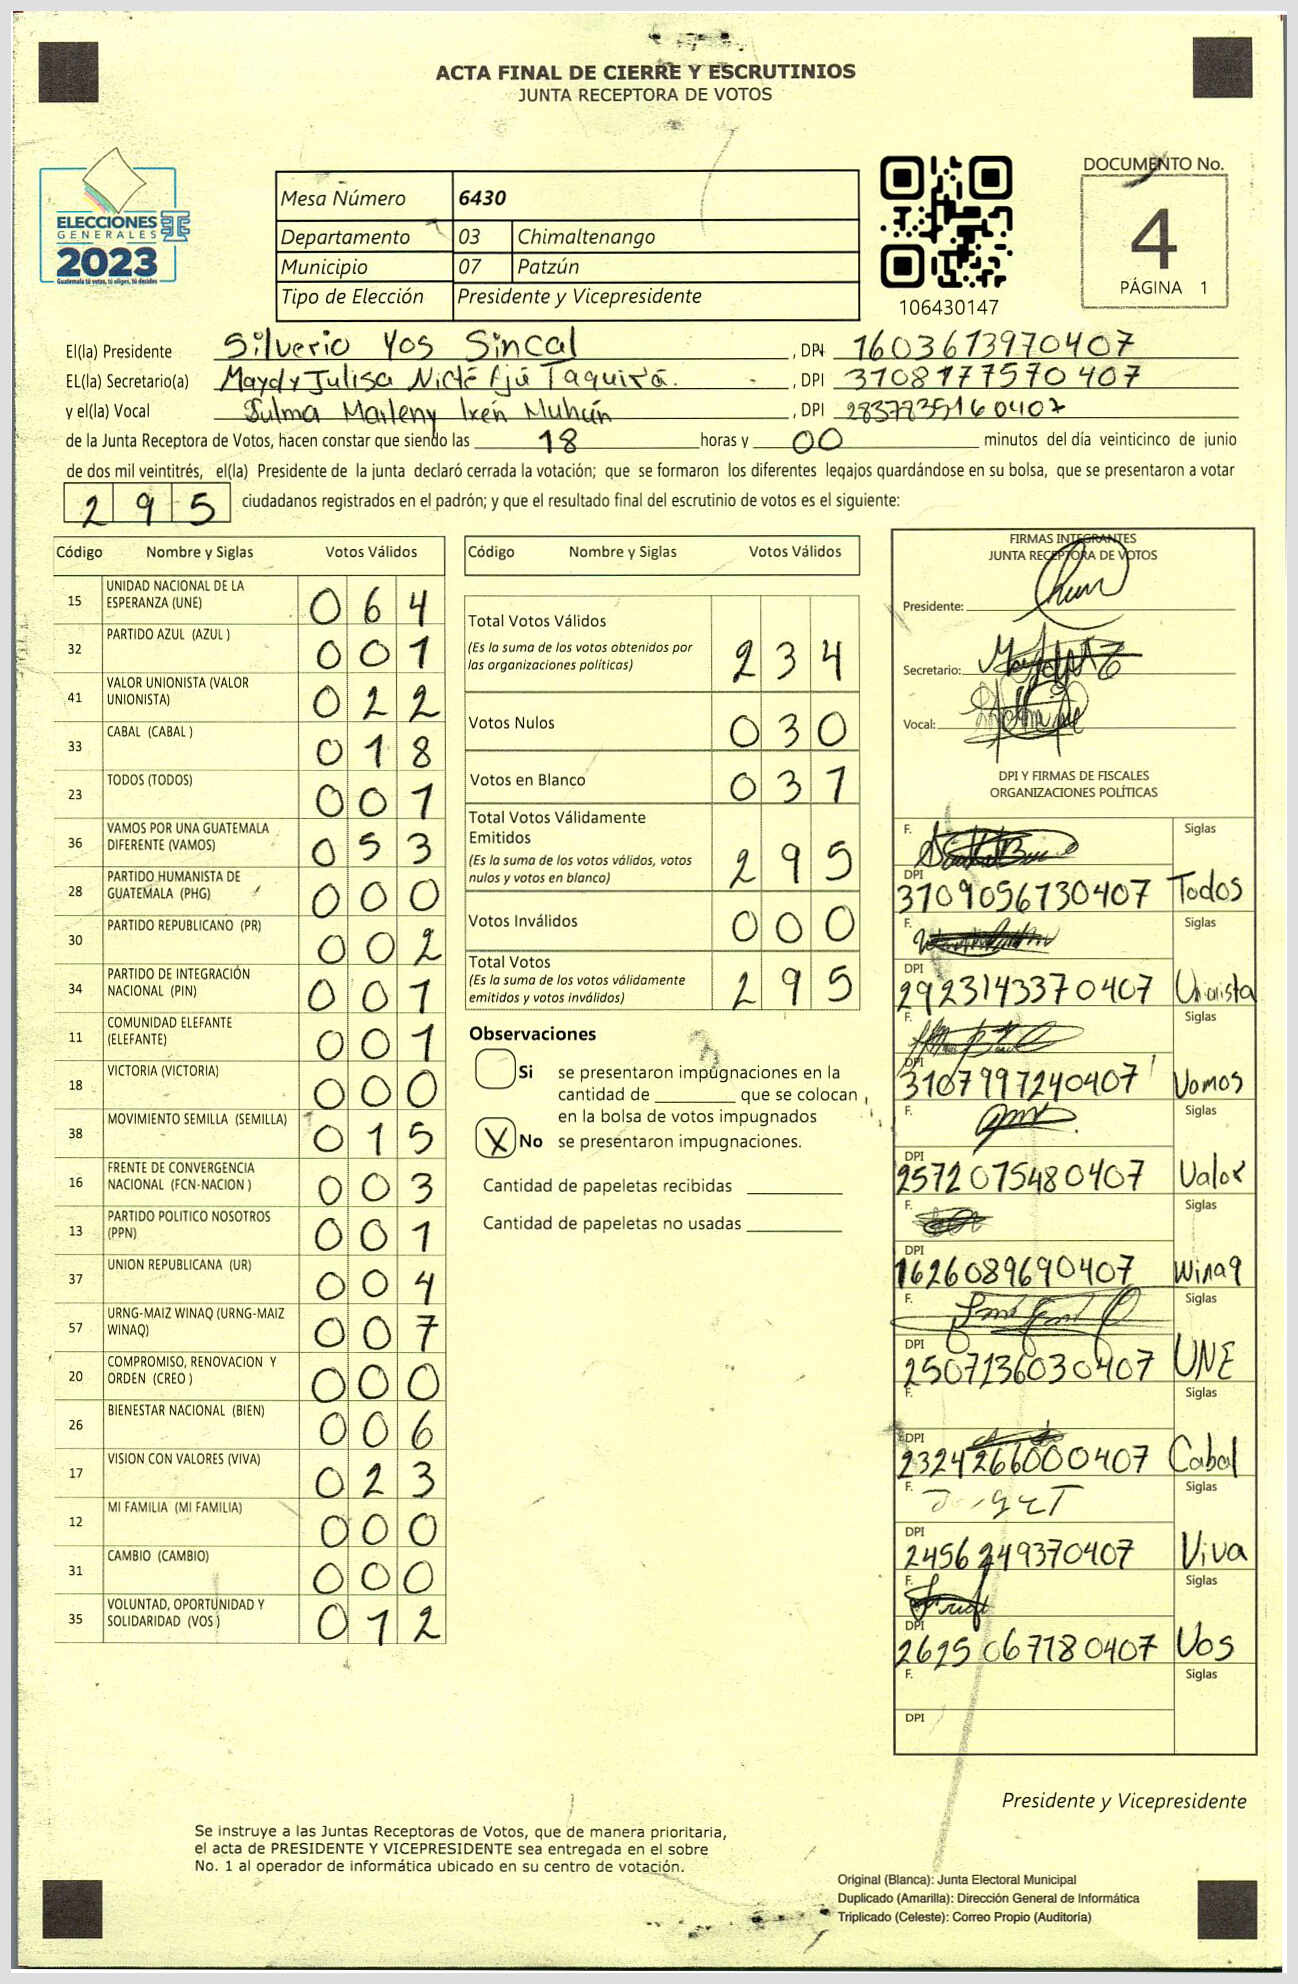 ACTA FINAL DE CIERRE Y ESCRUTINIOS
JUNTA RECEPTORA DE VOTOS
ELECCIONES
GENERALES
2023
Guatemala tú votas, tú eliges, tú decides
Mesa Número 6430
Departamento 03 Chimaltenango
Municipio 07 Patzún
Tipo de Elección Presidente y Vicepresidente
106430147
DOCUMENTO No.
4
PÁGINA 1
El(la) Presidente Silverio Yos Sincal, DPI 1603613970407
EL(la) Secretario(a) Maydy Julisa Nicté Ajú Taquirá., DPI 3108177570407
y el(la) Vocal Marleny Ixén Muhún, DPI 2837835160407
de la Junta Receptora de Votos, hacen constar que siendo las 18 horas y 00 minutos del día veinticinco de junio
de dos mil veintitrés, el(la) Presidente de la junta declaró cerrada la votación; que se formaron los diferentes legajos quardándose en su bolsa, que se presentaron a votar
295 ciudadanos registrados en el padrón; y que el resultado final del escrutinio de votos es el siguiente:
Código Nombre y Siglas Votos Válidos
15 UNIDAD NACIONAL DE LA ESPERANZA (UNE) 064
32 PARTIDO AZUL (AZUL ) 001
41 VALOR UNIONISTA (VALOR UNIONISTA) 022
33 CABAL (CABAL ) 018
23 TODOS (TODOS) 001
36 VAMOS POR UNA GUATEMALA DIFERENTE (VAMOS) 053
28 PARTIDO HUMANISTA DE GUATEMALA (PHG) 000
30 PARTIDO REPUBLICANO (PR) 002
34 PARTIDO DE INTEGRACIÓN NACIONAL (PIN) 001
11 COMUNIDAD ELEFANTE (ELEFANTE) 001
18 VICTORIA (VICTORIA) 000
38 MOVIMIENTO SEMILLA (SEMILLA) 015
16 FRENTE DE CONVERGENCIA NACIONAL (FCN-NACION ) 003
13 PARTIDO POLITICO NOSOTROS (PPN) 001
37 UNION REPUBLICANA (UR) 004
57 URNG-MAIZ WINAQ (URNG-MAIZ WINAQ) 007
20 COMPROMISO, RENOVACION Y ORDEN (CREO ) 000
26 BIENESTAR NACIONAL (BIEN) 006
17 VISION CON VALORES (VIVA) 023
12 MI FAMILIA (MI FAMILIA) 000
31 CAMBIO (CAMBIO) 000
35 VOLUNTAD, OPORTUNIDAD Y SOLIDARIDAD (VOS ) 012
Código Nombre y Siglas Votos Válidos
Total Votos Válidos 234
(Es la suma de los votos obtenidos por
las organizaciones políticas)
Votos Nulos 030
Votos en Blanco 031
Total Votos Válidamente
Emitidos 295
(Es la suma de los votos válidos, votos
nulos y votos en blanco)
Votos Inválidos 000
Total Votos 295
(Es la suma de los votos válidamente
emitidos y votos inválidos)
Observaciones
Si se presentaron impugnaciones en la
cantidad de ________ que se colocan
en la bolsa de votos impugnados
X No se presentaron impugnaciones.
Cantidad de papeletas recibidas
Cantidad de papeletas no usadas
FIRMAS INTEGRANTES
JUNTA RECEPTORA DE VOTOS
Presidente:
Secretario:
Vocal:
DPI Y FIRMAS DE FISCALES
ORGANIZACIONES POLÍTICAS
F. Siglas
DPI
3109056730407 Todos
F. Siglas
DPI
2923143370407 Unionista
F. Siglas
DPI
3107997240407 Vamos
F. Siglas
DPI
2572075480407 Valor
F. Siglas
DPI
1626089690407 Winaq
F. Siglas
DPI
2507136030407 UNE
F. Siglas
DPI
2324266000407 Cabal
F. Siglas
DPI
2456249370407 Viva
F. Siglas
DPI
2625067180407 Vos
F. Siglas
DPI
Presidente y Vicepresidente
Se instruye a las Juntas Receptoras de Votos, que de manera prioritaria,
el acta de PRESIDENTE Y VICEPRESIDENTE sea entregada en el sobre
No. 1 al operador de informática ubicado en su centro de votación.
Original (Blanca): Junta Electoral Municipal
Duplicado (Amarilla): Dirección General de Informática
Triplicado (Celeste): Correo Propio (Auditoría)